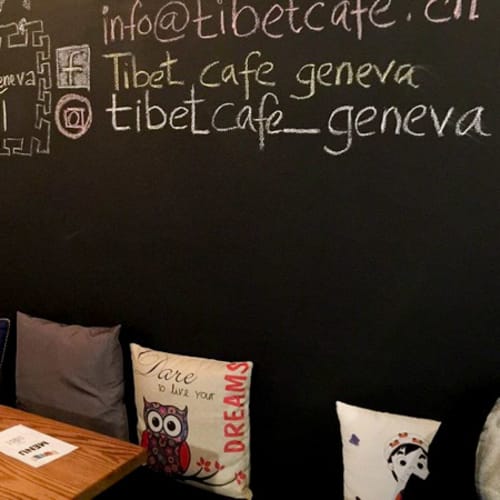 info@tibetcafe.ch
eneva
f Tibet cafe geneva
tibetcafe_geneva
Dare
to live your
DREAMS
MENU